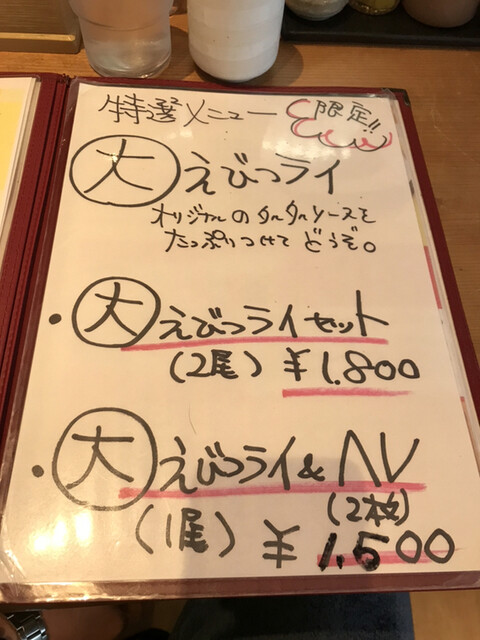 特選メニュー 限定!!
大 えびフライ
オリジナルのタルタルソースを
たっぷりつけてどうぞ。
・大 えびフライセット
(2尾) ¥1.800
・大 えびフライ&ヘレ
(2枚)
(1尾) ¥1.500